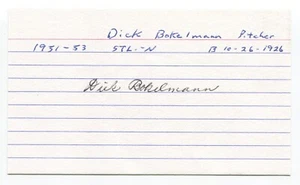 Dick Bokelmann Pitcher
1951-53 STL.-N B 10-26-1926
Dick Bokelmann